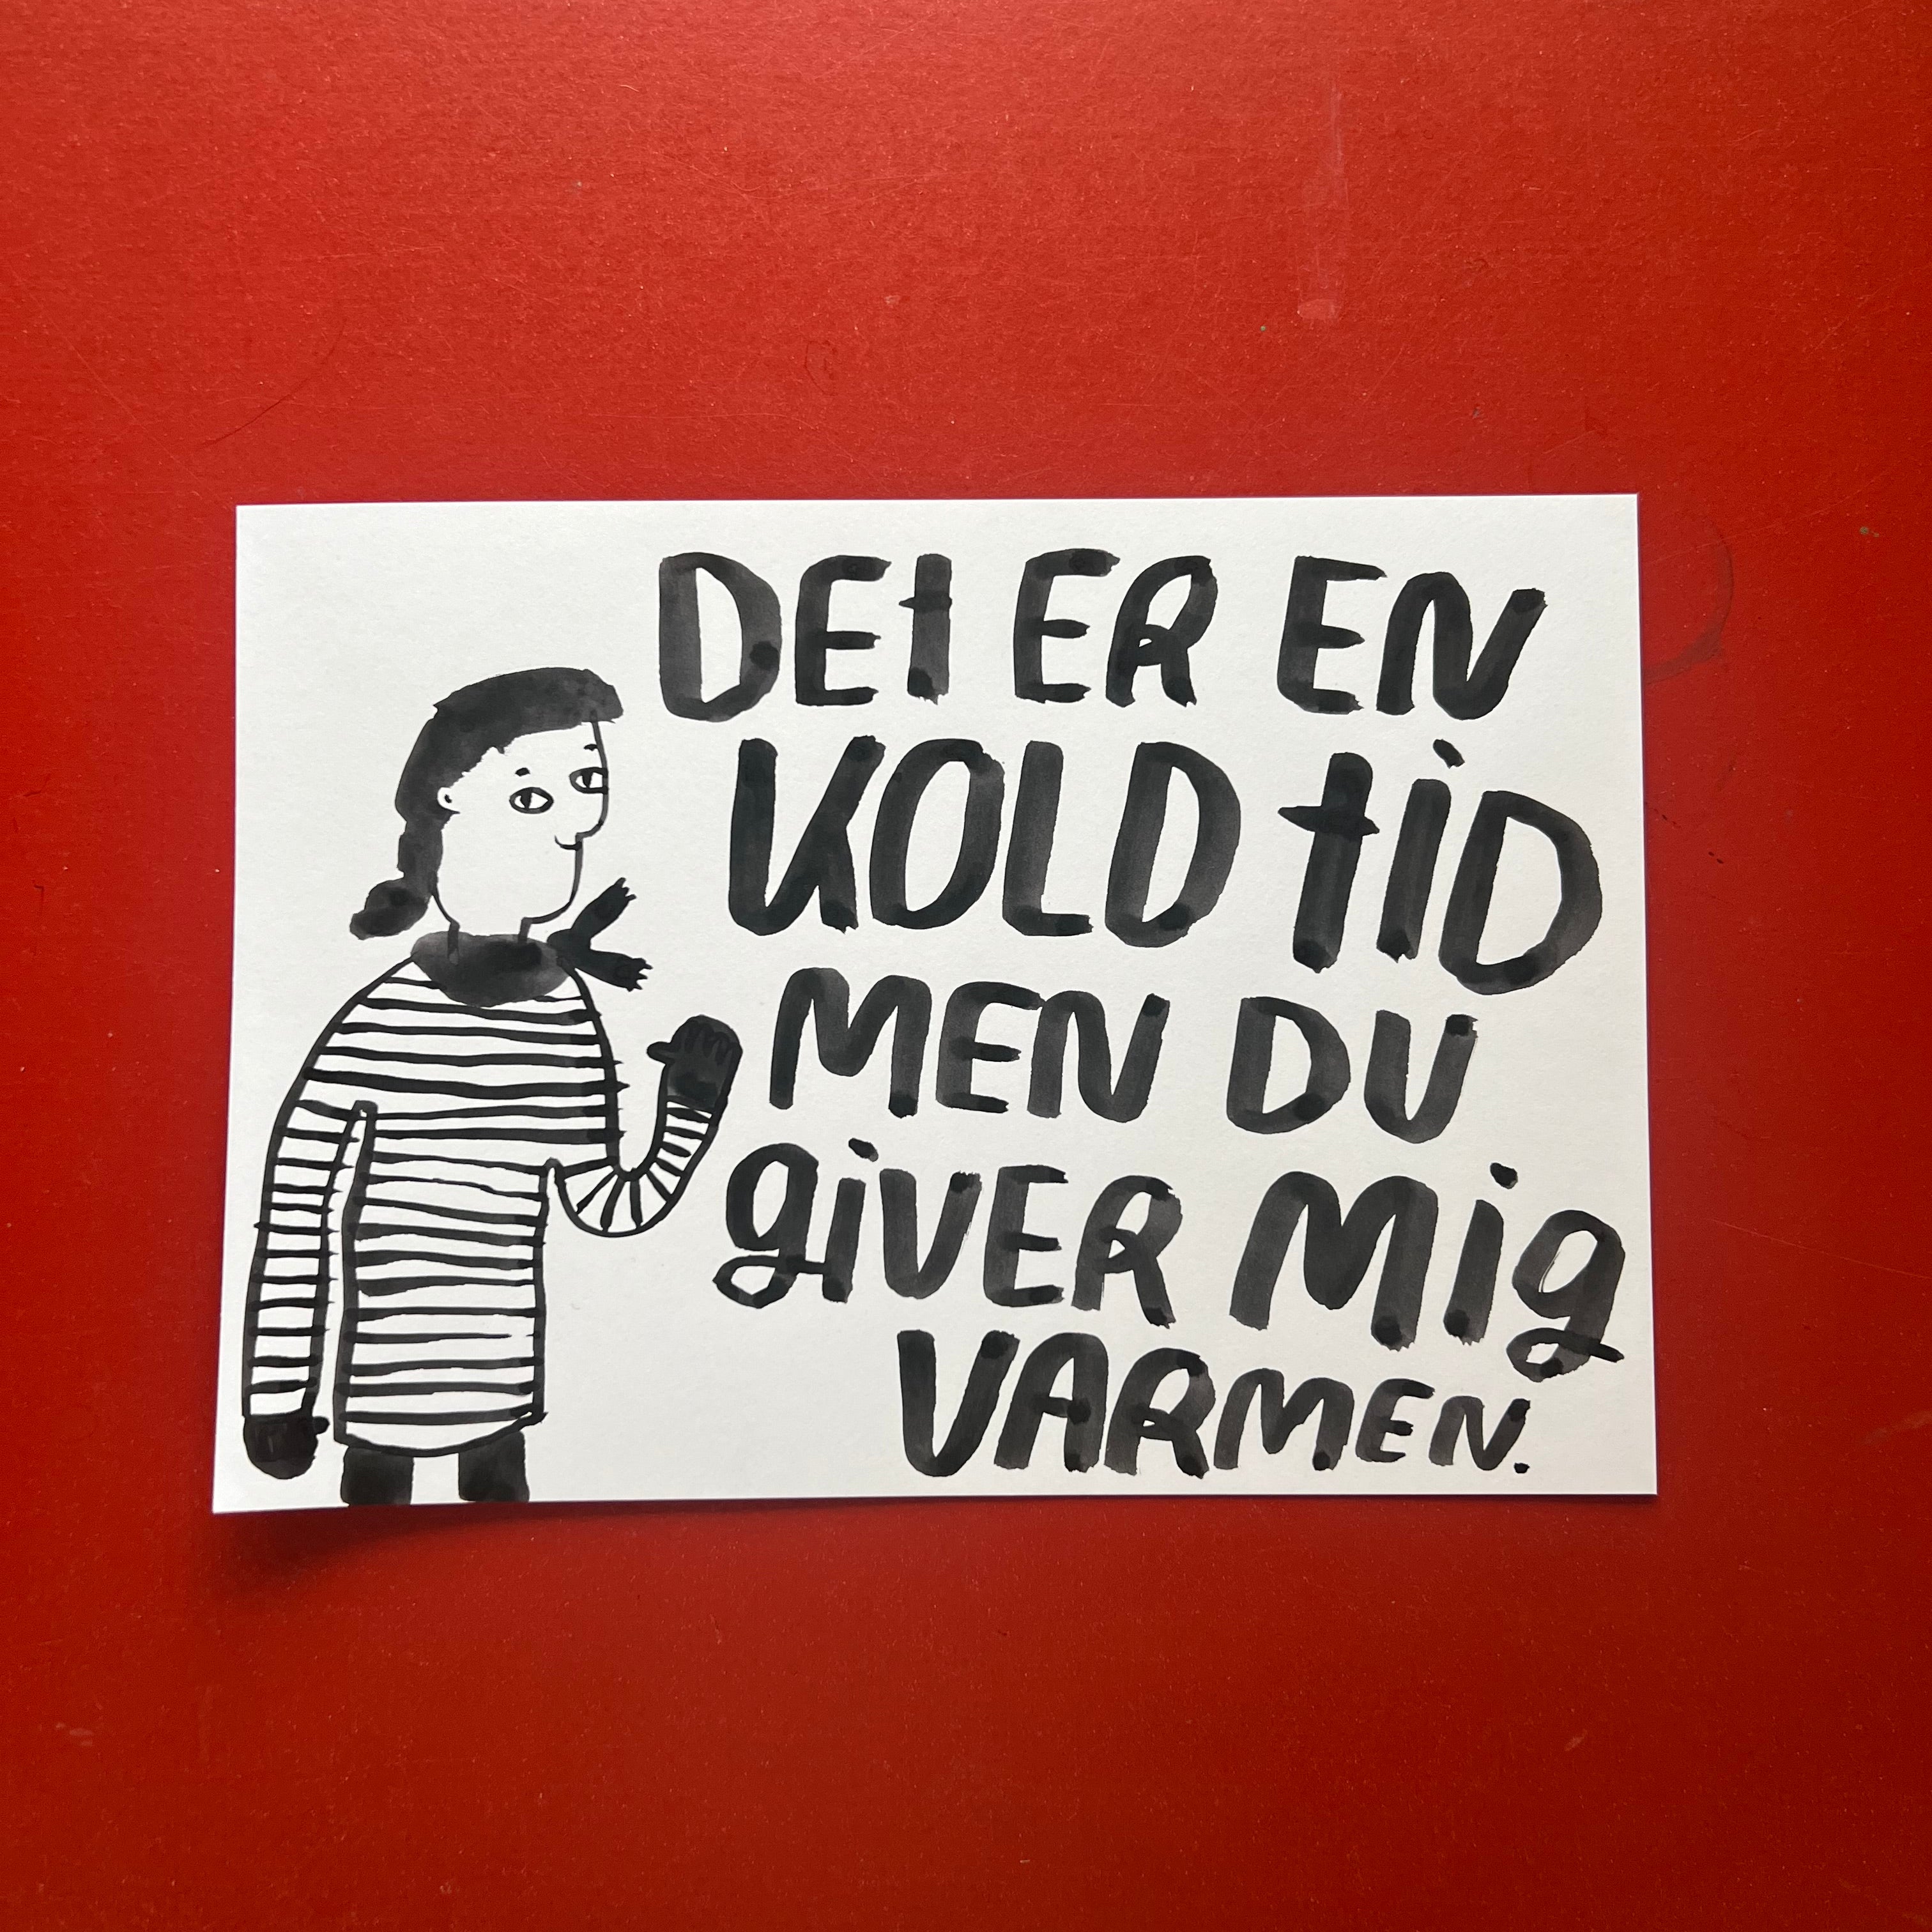 DEt ER EN
KOLD tiD
MEN DU
giVER Mig
VARMEN.